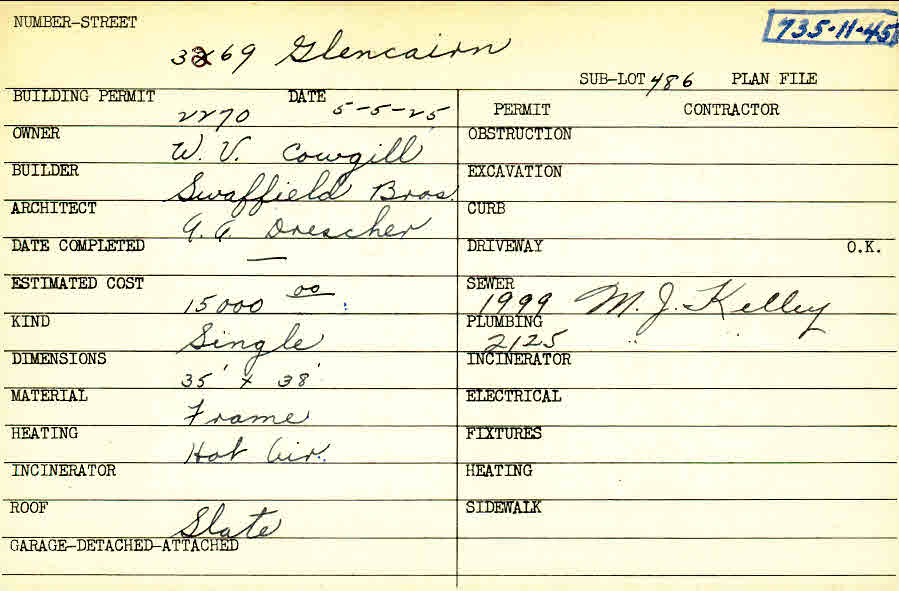 NUMBER-STREET
735-11-45
3269 Glencairn
SUB-LOT 486 PLAN FILE
BUILDING PERMIT 2270 DATE 5-5-25
PERMIT CONTRACTOR
OWNER W. V. Cowgill
OBSTRUCTION
BUILDER Swaffield Bros.
EXCAVATION
ARCHITECT G. A. Drescher
CURB
DATE COMPLETED —
DRIVEWAY O.K.
ESTIMATED COST 15000 00
SEWER 1999 M. J. Kelley
KIND Single
PLUMBING 2125 "
DIMENSIONS 35' x 38'
INCINERATOR
MATERIAL Frame
ELECTRICAL
HEATING Hot Air.
FIXTURES
INCINERATOR
HEATING
ROOF Slate
SIDEWALK
GARAGE-DETACHED-ATTACHED